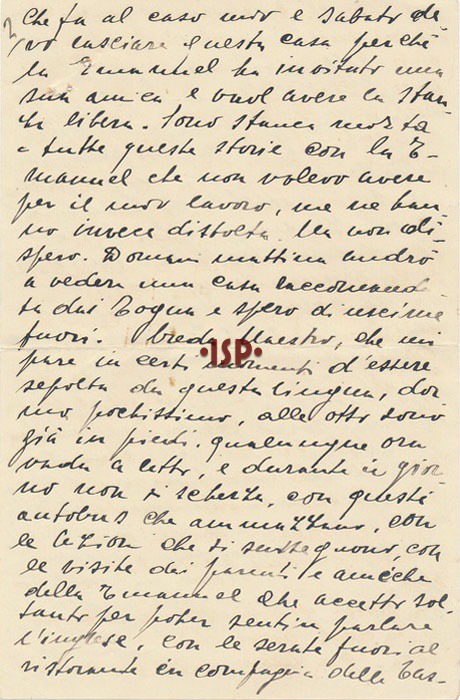 2)
che fa al caso mio e sabato de-
vo lasciare questa casa perché
la Emanuel ha invitato una
sua amica e vuol avere la stan-
za libera. Sono stanca morta
e tutte queste storie con la E-
manuel che non volevo avere
per il mio lavoro, me ne han-
no invece distolta. Ma non di-
spero. Domani mattina andrò
a vedere una casa raccomanda-
ta dai Togna e spero di uscirne
fuori. Creda Maestro, che mi
pare in certi momenti d'essere
sepolta da questa lingua, dor
mo pochissimo, alle otto sono
già in piedi, qualunque ora
vada a letto, e durante il gior-
no non si scherza, con questi
autobus che ammazzano, con
le lezioni che si susseguono, con
le visite dei parenti e amiche
della Emanuel che accetto sol-
tanto per poter sentir parlare
l'inglese, con le serate fuori al
ristorante in compagnia della Cas-
·ISP·